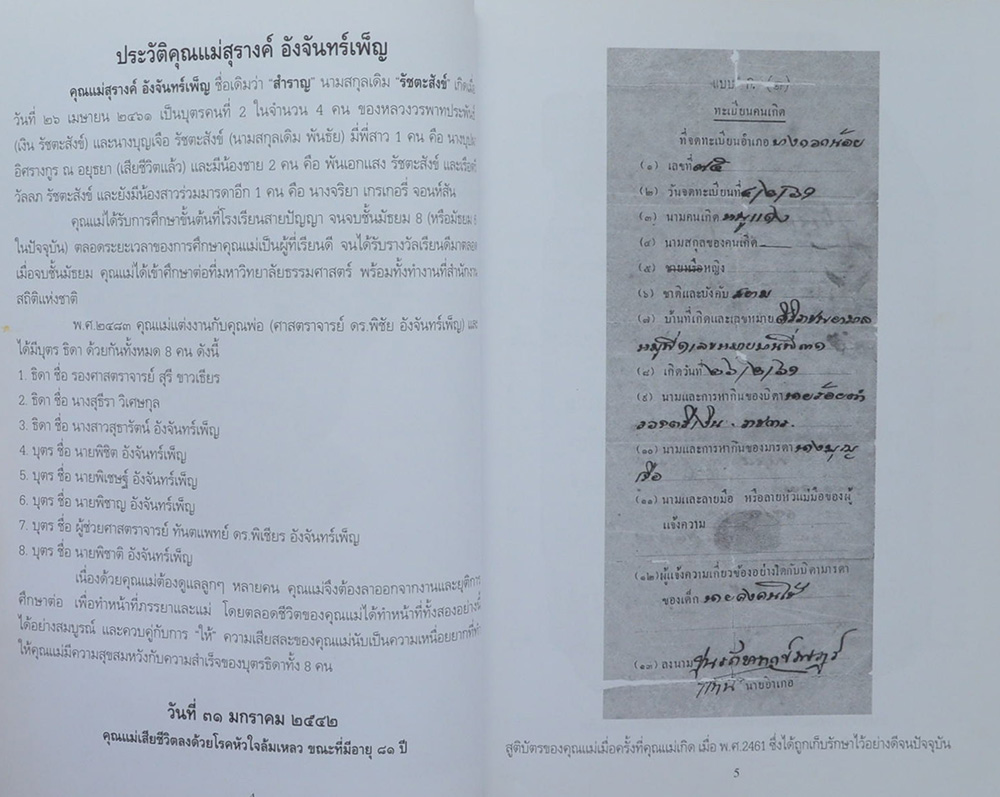 ประวัติคุณแม่สุรางค์ อังจันทร์เพ็ญ
คุณแม่สุรางค์ อังจันทร์เพ็ญ ชื่อเดิมว่า "สำราญ" นามสกุลเดิม "รัชตะสังข์" เกิดเมื่อ
วันที่ ๒๖ เมษายน ๒๔๖๑ เป็นบุตรคนที่ 2 ในจำนวน 4 คน ของหลวงวรพาทประพันธ์
(เงิน รัชตะสังข์) และนางบุญเจือ รัชตะสังข์ (นามสกุลเดิม พันธัย) มีพี่สาว 1 คน คือ
อิศรางกูร ณ อยุธยา (เสียชีวิตแล้ว) และมีน้องชาย 2 คน คือ พันเอกแสง รัชตะสังข์
วัลลภ รัชตะสังข์ และยังมีน้องสาวร่วมมารดาอีก 1 คน คือ นางจริยา เกรเกอรี่ จอนห์สัน
คุณแม่ได้รับการศึกษาขั้นต้นที่โรงเรียนสายปัญญา จนจบชั้นมัธยม 8 (หรือมัธยม
ในปัจจุบัน) ตลอดระยะเวลาของการศึกษาคุณแม่เป็นผู้ที่เรียนดี จนได้รับรางวัลเรียนดีมาตลอด
เมื่อจบชั้นมัธยม คุณแม่ได้เข้าศึกษาต่อที่มหาวิทยาลัยธรรมศาสตร์ พร้อมทั้งทำงานที่สำนักงาน
สถิติแห่งชาติ
พ.ศ.๒๔๘๓ คุณแม่แต่งงานกับคุณพ่อ (ศาสตราจารย์ ดร.พิชัย อังจันทร์เพ็ญ) และ
ได้มีบุตร ธิดา ด้วยกันทั้งหมด 8 คน ดังนี้
1. ธิดา ชื่อ รองศาสตราจารย์ สุรี ขาวเธียร
2. ธิดา ชื่อ นางสุธีรา วิเศษกุล
3. ธิดา ชื่อ นางสาวสุธารัตน์ อังจันทร์เพ็ญ
4. บุตร ชื่อ นายพิชิต อังจันทร์เพ็ญ
5. บุตร ชื่อ นายพิเชษฐ์ อังจันทร์เพ็ญ
6. บุตร ชื่อ นายพิชาญ อังจันทร์เพ็ญ
7. บุตร ชื่อ ผู้ช่วยศาสตราจารย์ ทันตแพทย์ ดร.พิเชียร อังจันทร์เพ็ญ
8. บุตร ชื่อ นายพิชาติ อังจันทร์เพ็ญ
เนื่องด้วยคุณแม่ต้องดูแลลูกๆ หลายคน คุณแม่จึงต้องลาออกจากงานและยุติการ
ศึกษาต่อ เพื่อทำหน้าที่ภรรยาและแม่ โดยตลอดชีวิตของคุณแม่ได้ทำหน้าที่ทั้งสองอย่างนี้
ได้อย่างสมบูรณ์ และควบคู่กับการ "ให้" ความเสียสละของคุณแม่นับเป็นความเหนื่อยยากที่ทำ
ให้คุณแม่มีความสุขสมหวังกับความสำเร็จของบุตรธิดาทั้ง 8 คน
วันที่ ๓๑ มกราคม ๒๕๔๒
คุณแม่เสียชีวิตลงด้วยโรคหัวใจล้มเหลว ขณะที่มีอายุ ๘๑ ปี
แบบ
ทะเบียนคนเกิด
ที่จดทะเบียนอำเภอ บางกอกน้อย
(๑) เลขที่ ๗๕
(๒) วันจดทะเบียนที่
(๓) นามคนเกิด หนูแดง
(๔) นามสกุลของคนเกิด
(๕) ชายหรือหญิง
(๖) ชาติและบังคับ สยาม
(๗) บ้านที่เกิดและเลขหมาย ศิริราชพยาบาล
หมู่ที่ ๑ เลขหมายบ้านที่ ๓๑
(๘) เกิดวันที่ ๒๖/๒/๖๑
(๙) นามและการหากินของบิดา นายร้อยตำ
(๑๐) นามและการหากินของมารดา นางบุญ
เจือ
(๑๑) นามและลายมือ หรือลายหัวแม่มือของผู้
แจ้งความ
(๑๒) ผู้แจ้งความเกี่ยวข้องอย่างใดกับบิดามารดา
ของเด็ก
(๑๓) ลงนาม
แทน นายอำเภอ
สูติบัตรของคุณแม่เมื่อครั้งที่คุณแม่เกิด เมื่อ พ.ศ.2461 ซึ่งได้ถูกเก็บรักษาไว้อย่างดีจนปัจจุบัน
5